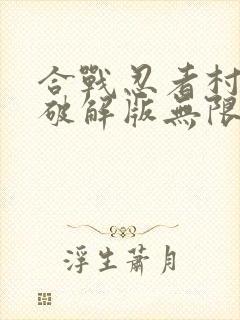 合戰忍者村
破解版無限
浮生蕭月